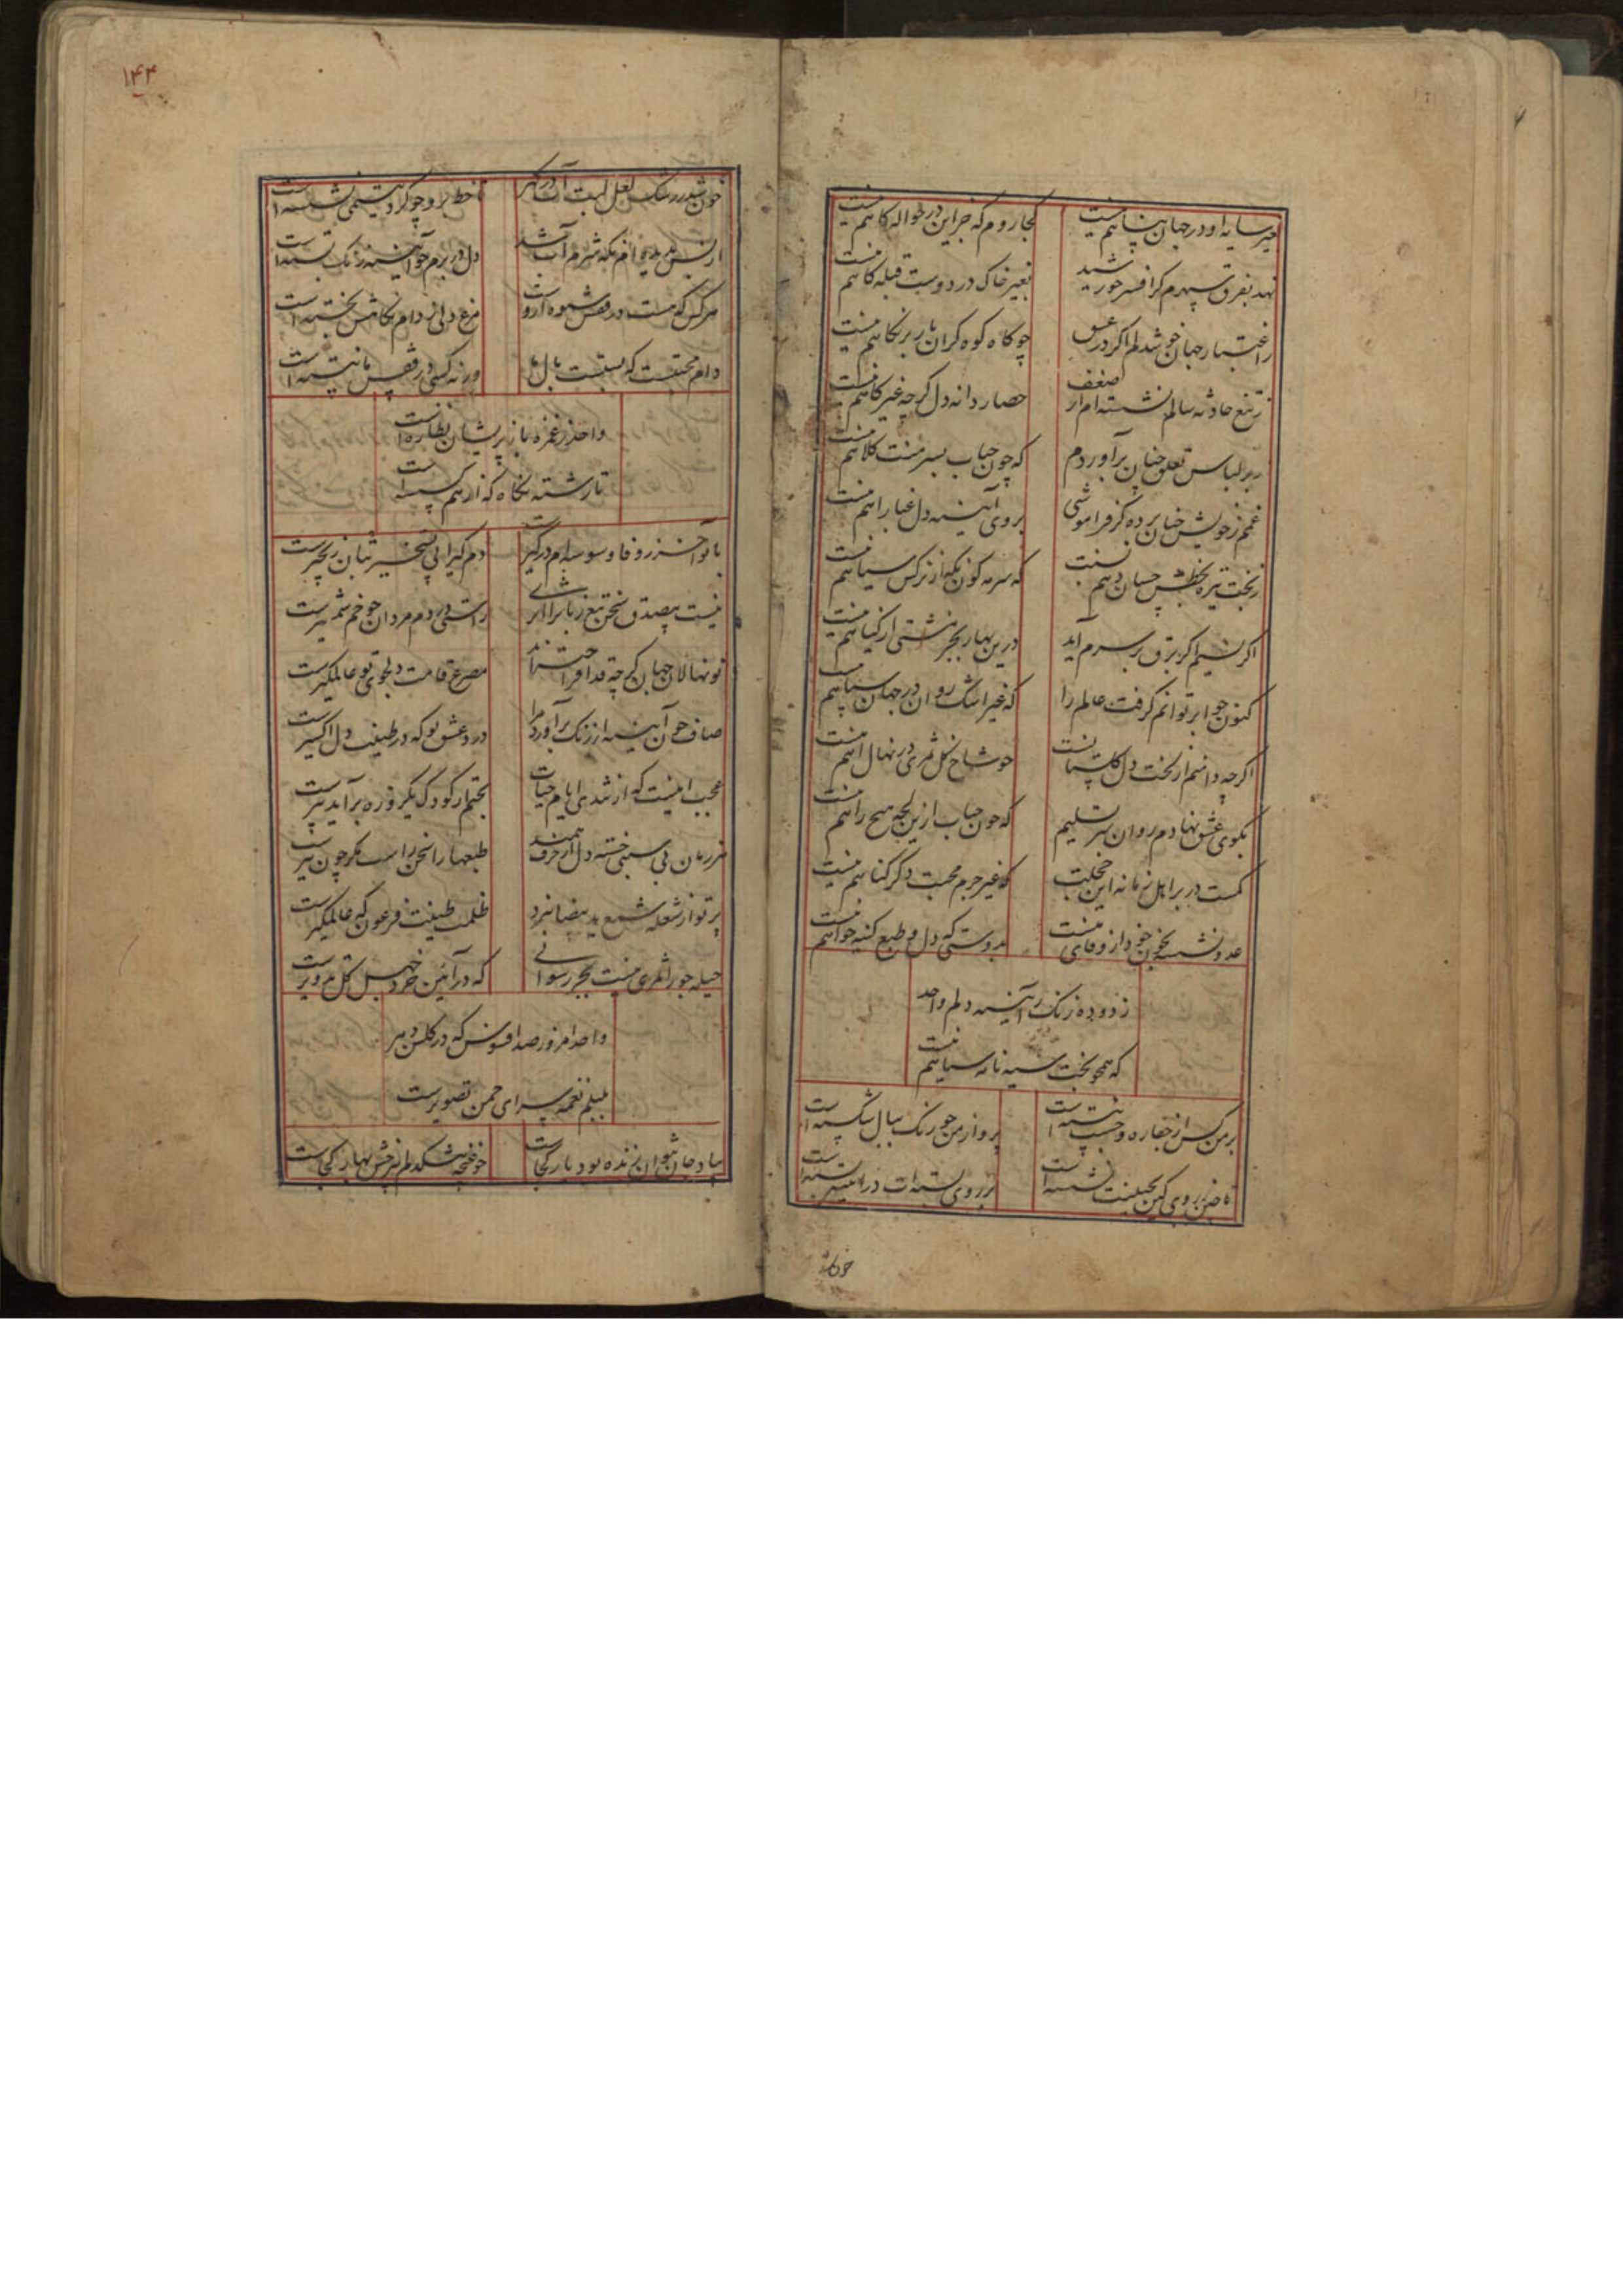 بغیر سایه او در جهان پناهم نیست
کجا روم که جز این در حواله کاهم نیست
نهد بفرق سپهرم کر افسر خورشید
بغیر خاک در دوست قبله کاهم نیست
ز اعتبار جهان خوشدلم اکر در عشق
چو کاه کوه کران بار بر نکاهم نیست
ز تیغ حادثه سالم نشسته ام از ضعف
حصار دانه دل کرچه غیر کاهم نیست
سر از لباس تعلق چنان برآوردم
که چون حباب بسر منت کلاهم نیست
غمم ز خویش چنان برده کز فراموشی
بروی آینه دل غبار راهم نیست
ز بخت تیره بخطش چسان دهم نسبت
که سرمه کون نکه از نرکس سیاهم نیست
اکر نسیم اکر برق بر سرم آید
درین بهار بجز مشتی از کیاهم نیست
کنون چو ابر توانم کرفت عالم را
که غیر اشک روان در جهان سپاهم نیست
اکرچه دامنم از لخت دل کلستانست
چو شاخ کل ثمری در نهال آهم نیست
بکوی عشق نهادم روان سر تسلیم
که چون حباب ازین لجه هیچ راهم نیست
کمست در بر اهل زمانه این خجلت
که غیر جرم محبت دکر کناهم نیست
عدو نشسته بخون خود از وفای منست
بدوستی که دل و طبع کینه خواهم نیست
زدوده زنک ز آینه دلم واحد
که همچو بخت سیه نامه سیاهم نیست
بر من کس از نظاره و حسنت نبسته است
پرواز من چو رنک ببال شکسته است
تا خط بروی کین بجبینت نشسته است
بر روی
خون
۱۴۴
خون شد ز رشک لعل لبت آب در کهر
تا خط برو چو کرد یتیمی نشسته است
از بس بدیده ام نکه از شرم آب شد
دل در برم چو آینه زنک بسته است
هر کس که هست در قفس شیوه آرزوست
مرغ دلی ز دام نکاهش نجسته است
دام محبتست که بستست بال ما
ورنه کسی در قفس ما نبسته است
واحد ز غمزه باز پریشان نظاره است
تا رشته نکاه که از هم کسسته است
با تو آخر ز وفا وسوسه ام درکیر است
دم کیرا پی تسخیر بتان زنجیر است
نیست بیصدق سخن تیغ زبانرا اثری
راستی در دم مردان چو خم شمشیر است
نونهالان جهان کرچه قد افراخته اند
مصرع قامت دلجوی تو عالمکیر است
صاف چون آینه از زنک برآورد مرا
درد عشق تو که در طینت دل اکسیر است
عجب این نیست که از تندی ایام حیات
بختم ار کودک یکروزه برآید پیر است
طبعها را سخن راست مکر چون تیر است
پرتو از شعله شمع ید بیضا نبرد
ظلمت طینت فرعون که عالمکیر است
حیله جو را ثمری نیست بجز رسوائی
که در آئین خرد جهل کل تزویر است
واحد امروز صد افسوس که در کلشن دهر
بلبلم نغمه سرای چمن تصویر است
بیاد جان بتوان زنده بود یار کجاست
چو غنچه تنکدلم نرخش بهار کجاست